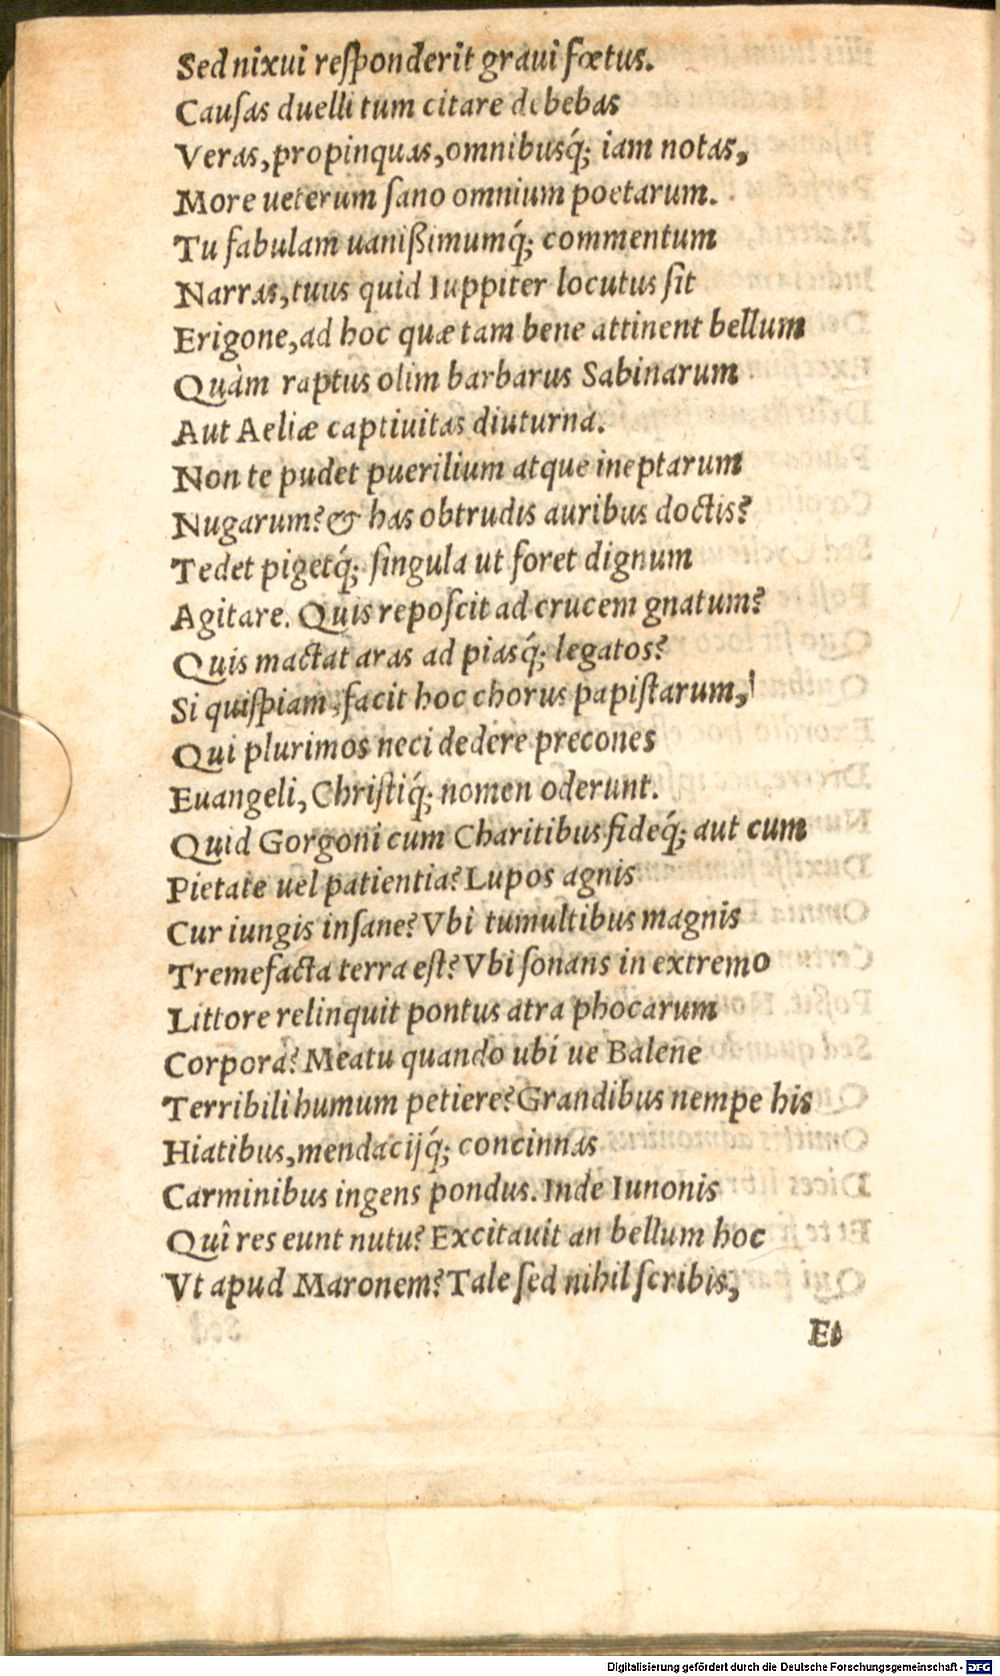 Sed nixui reſponderit graui fœtus.
Cauſas duelli tum citare debebas
Veras, propinquas, omnibusq́; iam notas,
More ueterum ſano omnium poetarum.
Tu fabulam uanißimumq́; commentum
Narras, tuus quid Iuppiter locutus ſit
Erigone, ad hoc quæ tam bene attinent bellum
Quàm raptus olim barbarus Sabinarum
Aut Aeliæ captiuitas diuturna.
Non te pudet puerilium atque ineptarum
Nugarum? & has obtrudis auribus doctis?
Tedet pigetq́; ſingula ut foret dignum
Agitare. Quis repoſcit ad crucem gnatum?
Quis mactat aras ad piasq́; legatos?
Si quiſpiam, facit hoc chorus papiſtarum,
Qui plurimos neci dedere precones
Euangeli, Chriſtiq́; nomen oderunt.
Quid Gorgoni cum Charitibus fideq́; aut cum
Pietate uel patientia? Lupos agnis
Cur iungis inſane? Vbi tumultibus magnis
Tremefacta terra eſt? Vbi ſonans in extremo
Littore relinquit pontus atra phocarum
Corpora? Meatu quando ubi ue Balene
Terribili humum petiere? Grandibus nempe his
Hiatibus, mendacijq́; concinnas
Carminibus ingens pondus. Inde Iunonis
Quî res eunt nutu? Excitauit an bellum hoc
Vt apud Maronem? Tale ſed nihil ſcribis,
Et
Digitalisierung gefördert durch die Deutsche Forschungsgemeinschaft - DFG